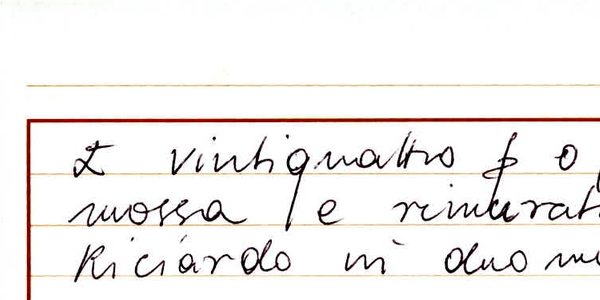 £ vintiquattro p o
mossa e rimurat
Riciardo in duo mu